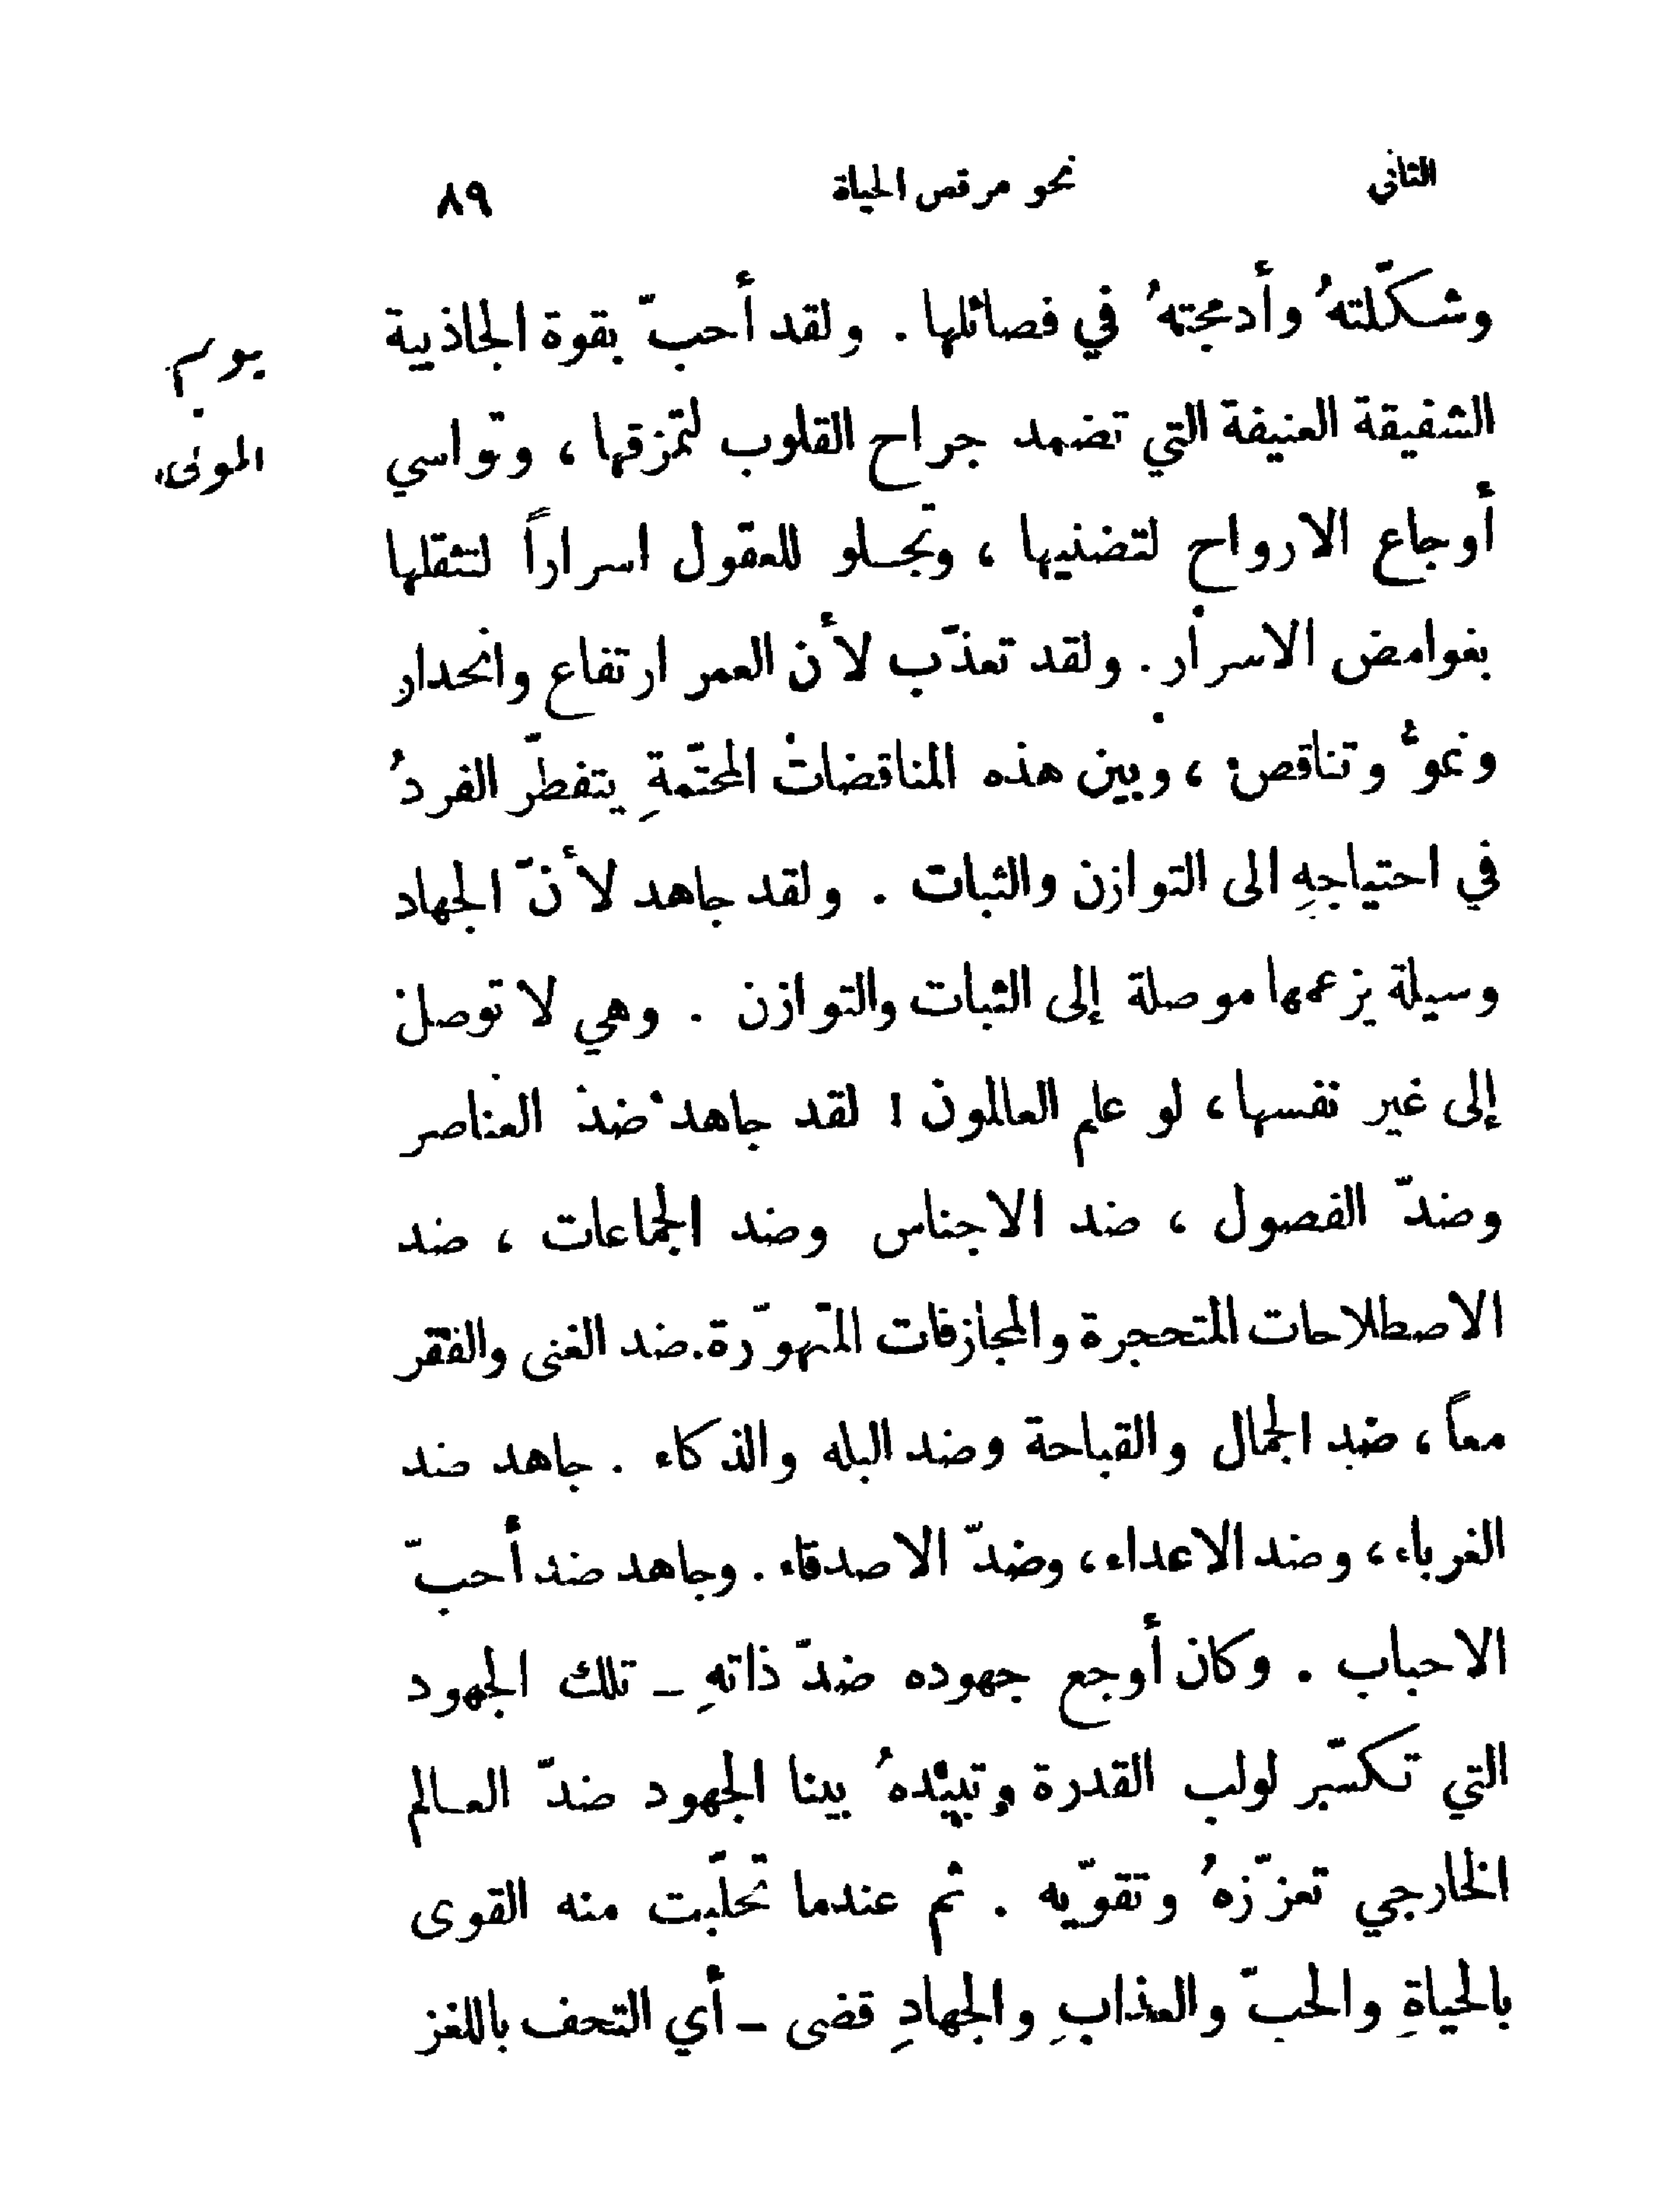 الثانى نحو مرقص الحياة ٨٩
وشكّلتهُ وأدمجتهُ في فصائلها . ولقد أحبّ بقوة الجاذبية
الشفيقة العنيفة التي تضمد جراح القلوب لتمزقها ، وتواسي
أوجاع الارواح لتضنيها ، وتجلو للعقول اسراراً لتثقلها
بغوامض الاسرار . ولقد تعذّب لأن العمر ارتفاع وانحدار
ونموٌّ وتناقص ، وبين هذه المناقضات المحتّمةِ يتفطّر الفردُ
في احتياجهِ الى التوازن والثبات . ولقد جاهد لأنّ الجهاد
وسيلة يزعمها موصلة إلى الثبات والتوازن . وهي لا توصل
إلى غير نفسها ، لو علم العالمون ! لقد جاهد ضد العناصر
وضدّ الفصول ، ضد الاجناس وضد الجماعات ، ضد
الاصطلاحات المتحجرة والمجازفات المتهوّرة . ضد الغنى والفقر
معاً ، ضد الجمال والقباحة وضد البله والذكاء . جاهد ضد
الغرباء ، وضد الاعداء ، وضدّ الاصدقاء . وجاهد ضد أحبّ
الاحباب . وكان أوجع جهوده ضدّ ذاتهِ – تلك الجهود
التي تكسّر لولب القدرة وتبيدهُ بينا الجهود ضدّ العالم
الخارجي تعزّزهُ وتقوّيه . ثم عندما تحلّبت منه القوى
بالحياةِ والحبّ والعذابِ والجهادِ قضى – أي التحف باللغز
يوم
الموتى